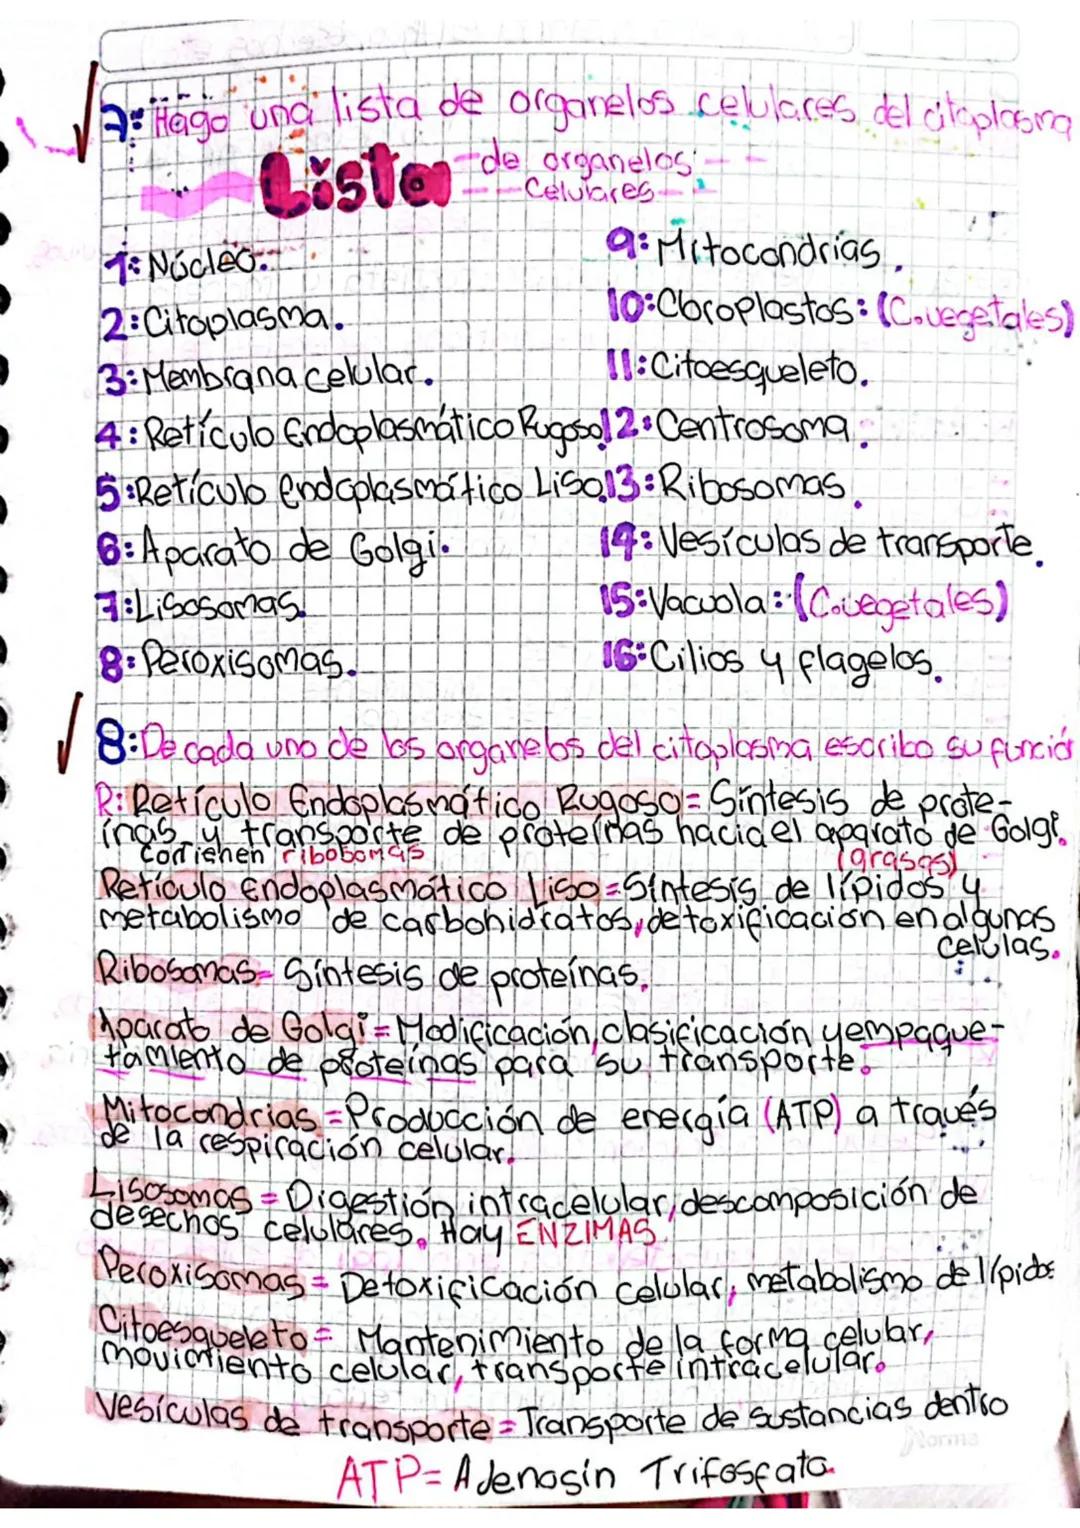 7: Hago una lista de organelos celulares del citoplasma
Lista de organelos
Celulares
1: Núcleo.
2: Citoplasma.
3: Membrana celular.
4: Retículo Endoplasmático Rugoso
5: Retículo endoplasmático Liso.
6: Aparato de Golgi.
7: Lisosomas.
8: Peroxisomas.
9: Mitocondrias.
10: Cloroplastos: (C.vegetales)
11: Citoesqueleto.
12: Centrosoma.
13: Ribosomas.
14: Vesículas de transporte.
15: Vacuola: (C.vegetales)
16: Cilios y flagelos.
8: De cada uno de los organelos del citoplasma escribo su función
R: Retículo Endoplasmático Rugoso= Síntesis de prote-
ínas y transporte de proteínas hacia el aparato de Golgi.
Contienen ribosomas
(grasas)
Retículo Endoplasmático Liso= Síntesis de lípidos y
metabolismo de carbohidratos, detoxificación en algunas
celulas.
Ribosomas= Síntesis de proteínas.
Aparato de Golgi= Modificación, clasificación y empaque-
tamiento de proteínas para su transporte.
Mitocondrias= Producción de energía (ATP) a través
de la respiración celular.
Lisosomas= Digestión intracelular, descomposición de
desechos celulares. Hay ENZIMAS.
Peroxisomas= Detoxificación celular, metabolismo de lípidos
Citoesqueleto= Mantenimiento de la forma celular,
movimiento celular, transporte intracelular.
Vesículas de transporte= Transporte de sustancias dentro
Norma
ATP= Adenosín Trifosfato